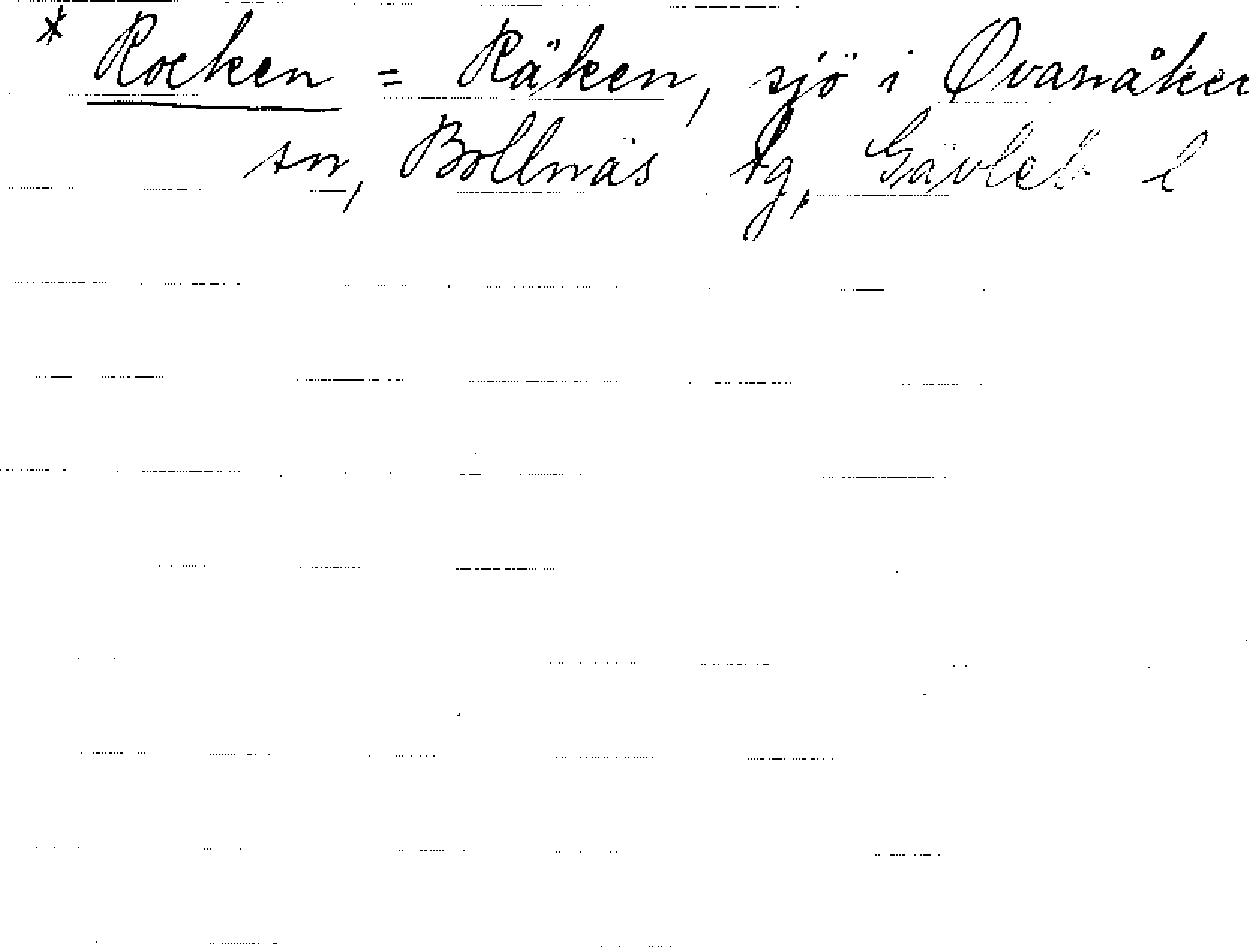 * Rocken = Räken, sjö i Ovanåker
sn, Bollnäs tg, Gävleb l